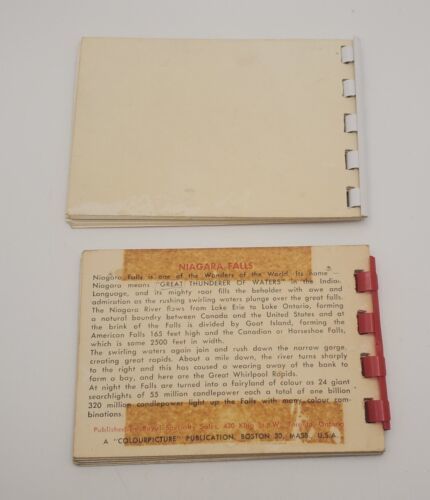 NIAGARA FALLS
Niagara Falls is one of the Wonders of the World. Its name —
Niagara means "GREAT THUNDERER OF WATERS" in the Indian
Language, and its mighty roar fills the beholder with awe and
admiration as the rushing swirling waters plunge over the great falls.
The Niagara River flows from Lake Erie to Lake Ontario, forming
a natural boundary between Canada and the United States and at
the brink of the Falls is divided by Goat Island, forming the
American Falls 165 feet high and the Canadian or Horseshoe Falls,
which is some 2500 feet in width.
The swirling waters again join and rush down the narrow gorge,
creating great rapids. About a mile down, the river turns sharply
to the right and this has caused a wearing away of the bank to
form a bay, and here are the Great Whirlpool Rapids.
At night the Falls are turned into a fairyland of colour as 24 giant
searchlights of 55 million candlepower each a total of one billion
320 million candlepower light up the Falls with many colour com-
binations.
Published by Royal Specialty Sales, 430 King St. W., Toronto, Ontario
A "COLOURPICTURE" PUBLICATION, BOSTON 30, MASS., U.S.A.